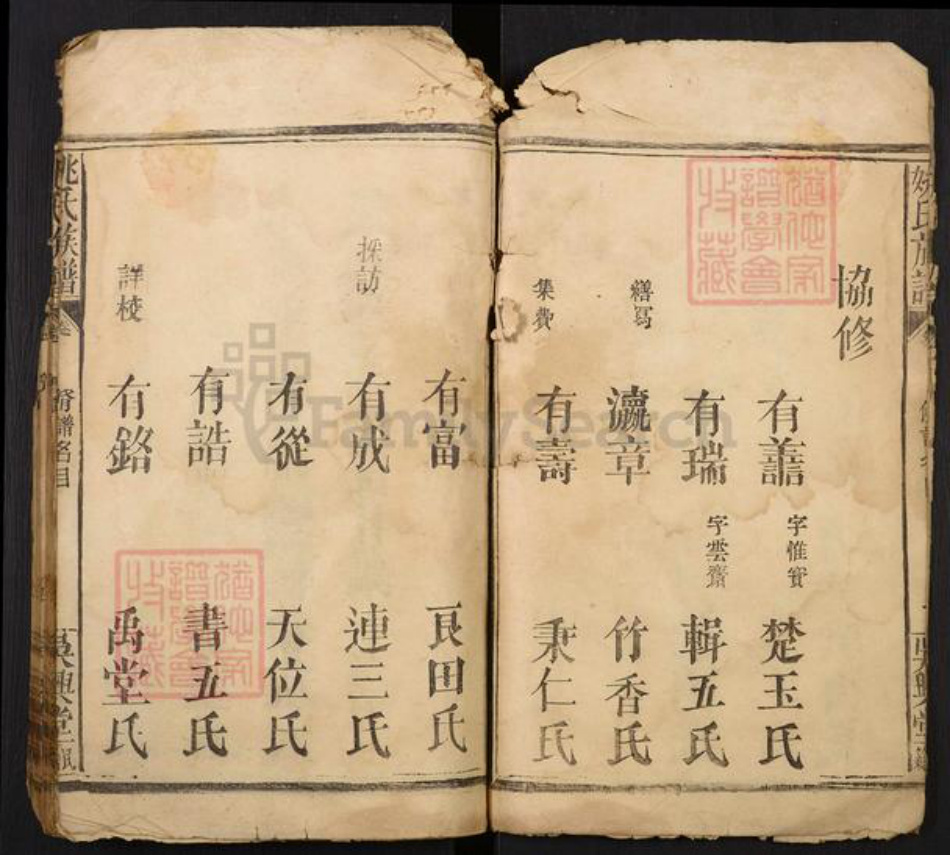 協修
有譱 字惟寳 楚玉氏
有瑞 字雲齋 輯五氏
繕寫 瀛章 竹香氏
集費 有壽 秉仁氏
姚氏族譜
吳興堂
有富 艮田氏
採訪 有成 連三氏
有從 天位氏
有誥 書五氏
詳校 有銘 禹堂氏
姚氏族譜 脩譜名目 吳興堂
FamilySearch